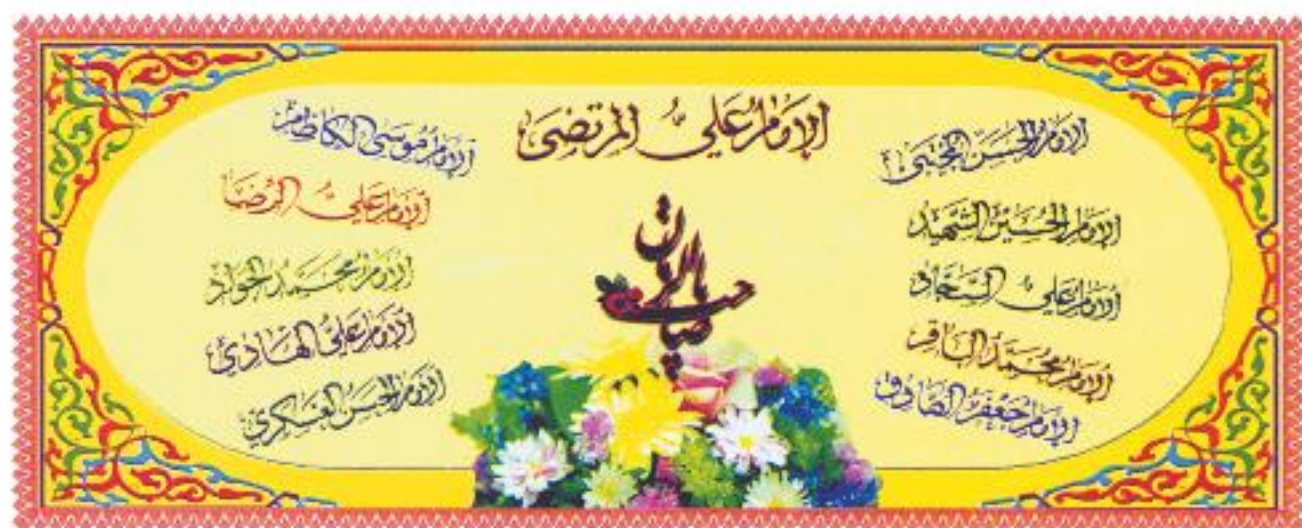 الإمام علي المرتضى
الإمام الحسن المجتبى
الإمام الحسين الشهيد
الإمام علي السجاد
الإمام محمد الباقر
الإمام جعفر الصادق
الإمام موسى الكاظم
الإمام علي الرضا
الإمام محمد الجواد
الإمام علي الهادي
الإمام الحسن العسكري
يا صاحب الزمان